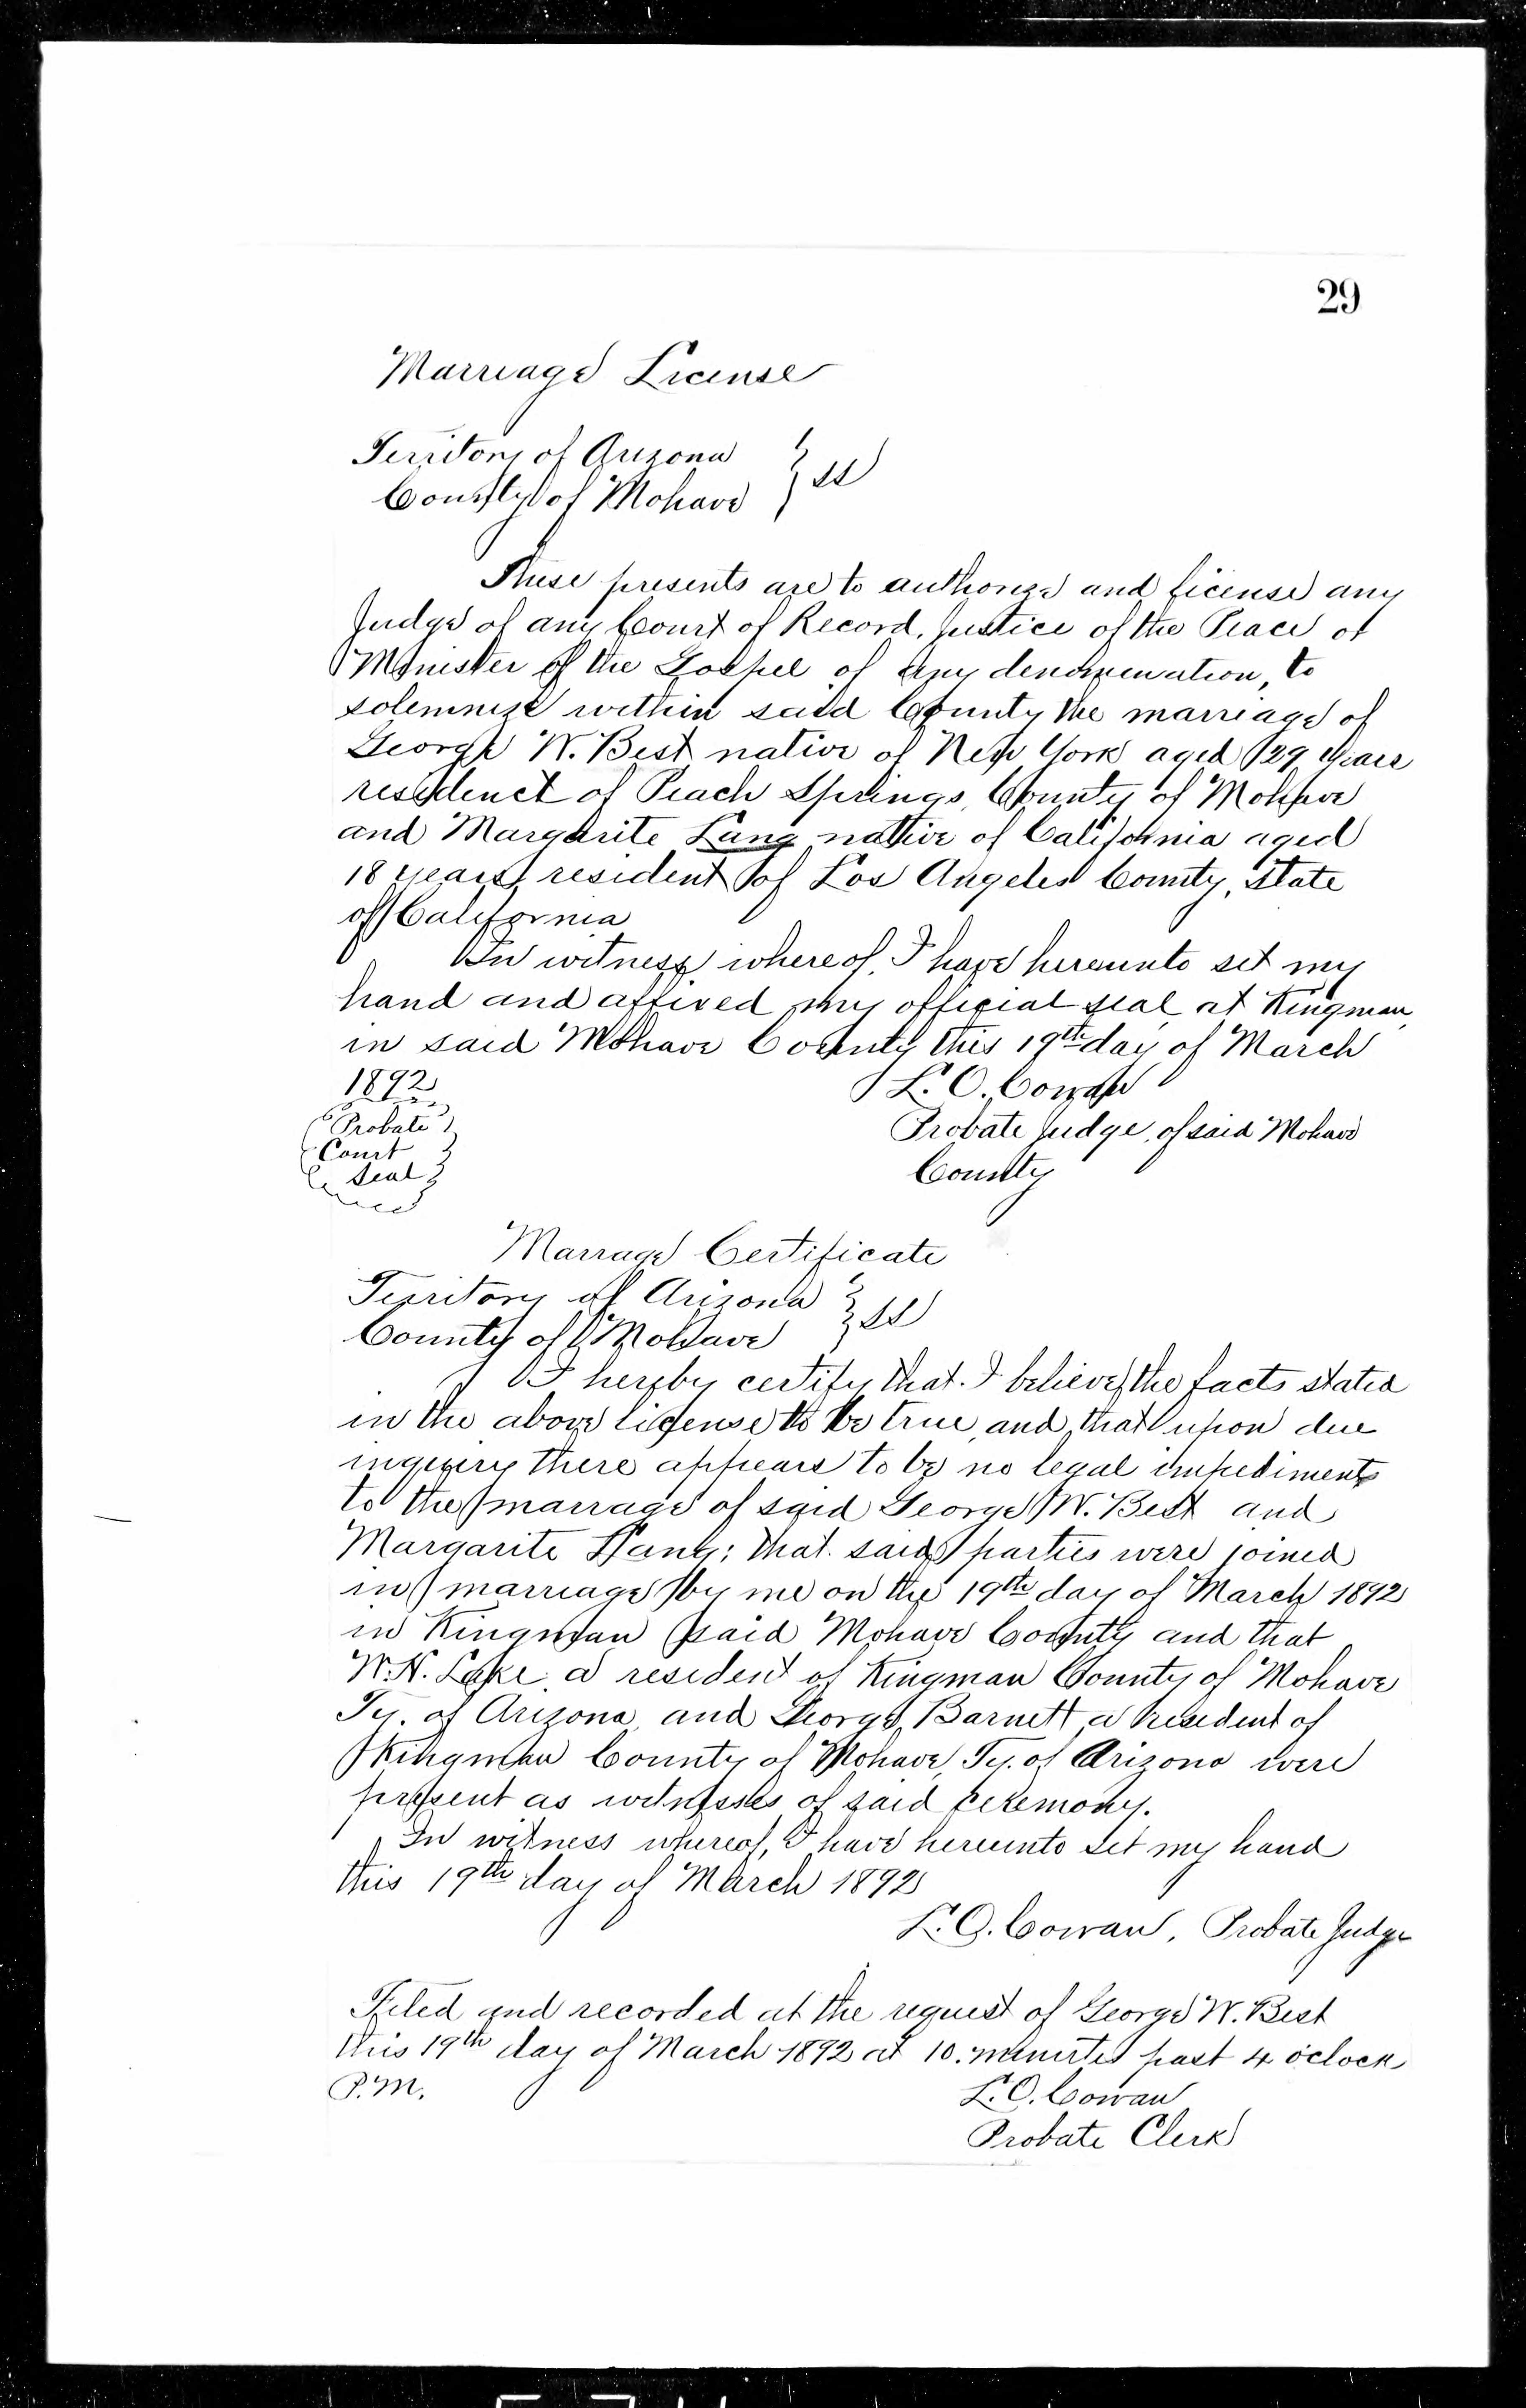 29
Marriage License
Territory of Arizona } ss
County of Mohave
These presents are to authorize and license any
Judge of any Court of Record, Justice of the Peace or
Minister of the Gospel of any denomination, to
solemnize within said County the marriage of
George W. Best native of New York aged 29 years
resident of Peach Springs, County of Mohave
and Margarite Lang native of California aged
18 years, resident of Los Angeles County, State
of California
In witness whereof, I have hereunto set my
hand and affixed my official seal at Kingman,
in said Mohave County this 19th day of March
1892 L. O. Cowan
Probate Judge, of said Mohave
County
Probate
Court
Seal
Marrage Certificate
Territory of Arizona } ss
County of Mohave
I hereby certify that I believe the facts stated
in the above license to be true, and that upon due
inquiry there appears to be no legal impediments
to the marrage of said George W. Best and
Margarite Lang; that said parties were joined
in marriage by me on the 19th day of March 1892
in Kingman said Mohave County and that
W. H. Lake a resident of Kingman County of Mohave
Ty. of Arizona and George Barnett a resident of
Kingman County of Mohave, Ty. of Arizona were
present as witnesses of said ceremony.
In witness whereof, I have hereunto set my hand
this 19th day of March 1892
L. O. Cowan, Probate Judge
Filed and recorded at the request of George W. Best
this 19th day of March 1892 at 10. minutes past 4 o'clock
P.M. L. O. Cowan
Probate Clerk